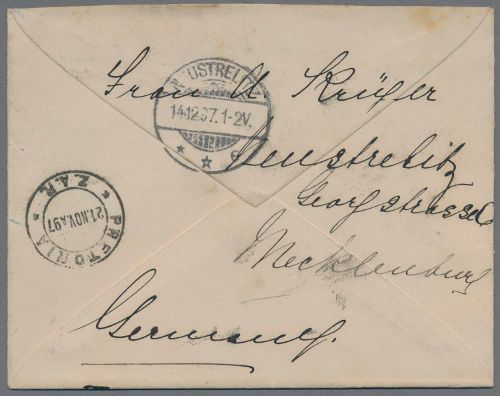 Frau A Krüger
Neustrelitz
Georgstrasse 6
Mecklenburg
Germany.
NEUSTRELITZ
14.12.97.1-2V.
* * c
PRETORIA
21.NOV.97
* Z.A.R. *